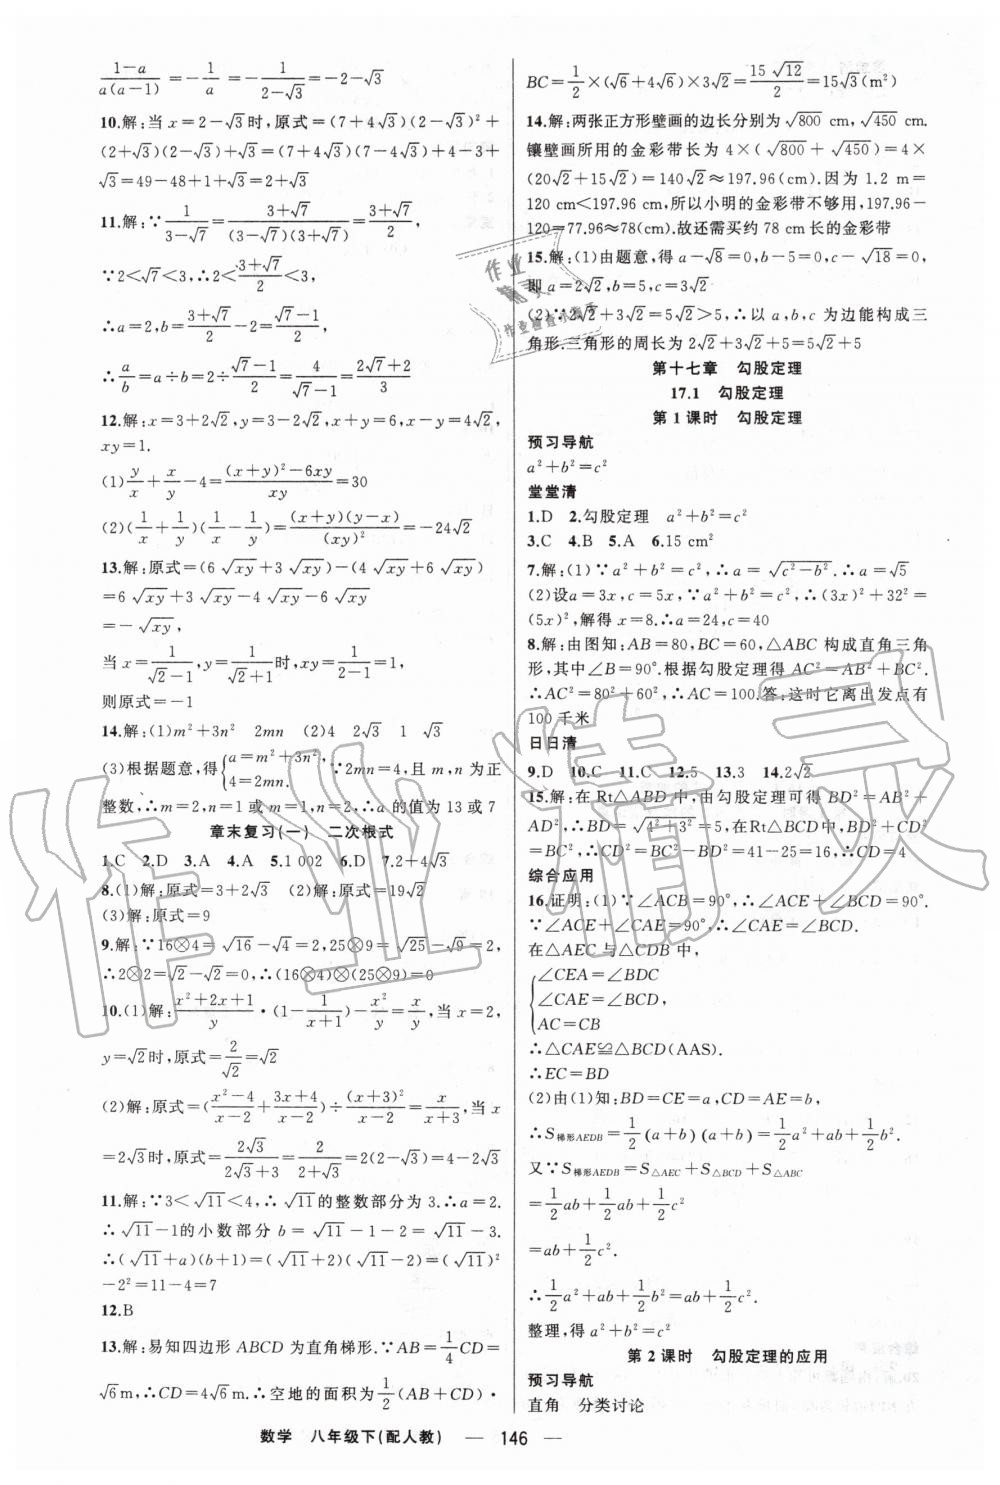 (1-a)/(a(a-1))=-1/a=-1/(2-√3)=-2-√3
10.解:当x=2-√3时,原式=(7+4√3)(2-√3)²+
(2+√3)(2-√3)+√3=(7+4√3)(7-4√3)+4-3+
√3=49-48+1+√3=2+√3
11.解:∵1/(3-√7)=(3+√7)/((3-√7)(3+√7))=(3+√7)/2,
∵2<√7<3,∴2<(3+√7)/2<3,
∴a=2,b=(3+√7)/2-2=(√7-1)/2,
∴a/b=a÷b=2÷(√7-1)/2=4/(√7-1)=(2√7+2)/3
12.解:x=3+2√2,y=3-2√2,x+y=6,x-y=4√2,
xy=1.
(1)y/x+x/y-4=((x+y)²-6xy)/xy=30
(2)(1/x+1/y)(1/x-1/y)=((x+y)(y-x))/(xy)²=-24√2
13.解:原式=(6√xy+3√xy)-(4√xy+6√xy)
=6√xy+3√xy-4√xy-6√xy
=-√xy,
当x=1/(√2-1),y=1/(√2+1)时,xy=1/(2-1)=1,
则原式=-1
14.解:(1)m²+3n² 2mn (2)4 2√3 1 √3
(3)根据题意,得{a=m²+3n², 4=2mn. ∵2mn=4,且m,n为正
整数,∴m=2,n=1或m=1,n=2,∴a的值为13或7
章末复习(一) 二次根式
1.C 2.D 3.A 4.A 5.1 002 6.D 7.2+4√3
8.(1)解:原式=3+2√3 (2)解:原式=19√2
(3)解:原式=9
9.解:∵16⊗4=√16-√4=2,25⊗9=√25-√9=2,
∴2⊗2=√2-√2=0,∴(16⊗4)⊗(25⊗9)=0
10.(1)解:(x²+2x+1)/y·(1-1/(x+1))-x²/y=x/y,当x=2,
y=√2时,原式=2/√2=√2
(2)解:原式=((x²-4)/(x-2)+(3x+4)/(x-2))÷(x+3)²/(x-2)=x/(x+3),当x
=2√3时,原式=2√3/(2√3+3)=2/(2+√3)=2(2-√3)=4-2√3
11.解:∵3<√11<4,∴√11的整数部分为3.∴a=2.
∴√11-1的小数部分b=√11-1-2=√11-3.
∴(√11+a)(b+1)=(√11+2)(√11-2)=(√11)²
-2²=11-4=7
12.B
13.解:易知四边形ABCD为直角梯形.∵AB=1/4CD=
√6m,∴CD=4√6m.∴空地的面积为1/2(AB+CD)·
BC=1/2×(√6+4√6)×3√2=15√12/2=15√3(m²)
14.解:两张正方形壁画的边长分别为√800 cm,√450 cm.
镶壁画所用的金彩带长为4×(√800+√450)=4×
(20√2+15√2)=140√2≈197.96(cm).因为1.2 m=
120 cm<197.96 cm,所以小明的金彩带不够用,197.96-
120=77.96≈78(cm).故还需买约78 cm长的金彩带
15.解:(1)由题意,得a-√8=0,b-5=0,c-√18=0,
即a=2√2,b=5,c=3√2
(2)∵2√2+3√2=5√2>5,∴以a,b,c为边能构成三
角形.三角形的周长为2√2+3√2+5=5√2+5
第十七章 勾股定理
17.1 勾股定理
第1课时 勾股定理
预习导航
a²+b²=c²
堂堂清
1.D 2.勾股定理 a²+b²=c²
3.C 4.B 5.A 6.15 cm²
7.解:(1)∵a²+b²=c²,∴a=√(c²-b²).∴a=√5
(2)设a=3x,c=5x,∵a²+b²=c²,∴(3x)²+32²=
(5x)²,解得x=8.∴a=24,c=40
8.解:由图知:AB=80,BC=60,△ABC构成直角三角
形,其中∠B=90°.根据勾股定理得AC²=AB²+BC².
∴AC²=80²+60²,∴AC=100.答:这时它离出发点有
100千米
日日清
9.D 10.C 11.C 12.5 13.3 14.2√2
15.解:在Rt△ABD中,由勾股定理可得BD²=AB²+
AD²,∴BD=√(4²+3²)=5,在Rt△BCD中,BD²+CD²
=BC²,∴CD²=BC²-BD²=41-25=16,∴CD=4
综合应用
16.证明:(1)∵∠ACB=90°,∴∠ACE+∠BCD=90°.
∵∠ACE+∠CAE=90°,∴∠CAE=∠BCD.
在△AEC与△CDB中,
{∠CEA=∠BDC
∠CAE=∠BCD,
AC=CB
∴△CAE≌△BCD(AAS).
∴EC=BD
(2)由(1)知:BD=CE=a,CD=AE=b,
∴S梯形AEDB=1/2(a+b)(a+b)=1/2a²+ab+1/2b².
又∵S梯形AEDB=S△AEC+S△BCD+S△ABC
=1/2ab+1/2ab+1/2c²
=ab+1/2c².
∴1/2a²+ab+1/2b²=ab+1/2c².
整理,得a²+b²=c²
第2课时 勾股定理的应用
预习导航
直角 分类讨论
数学 八年级下(配人教) — 146 —
作业精灵